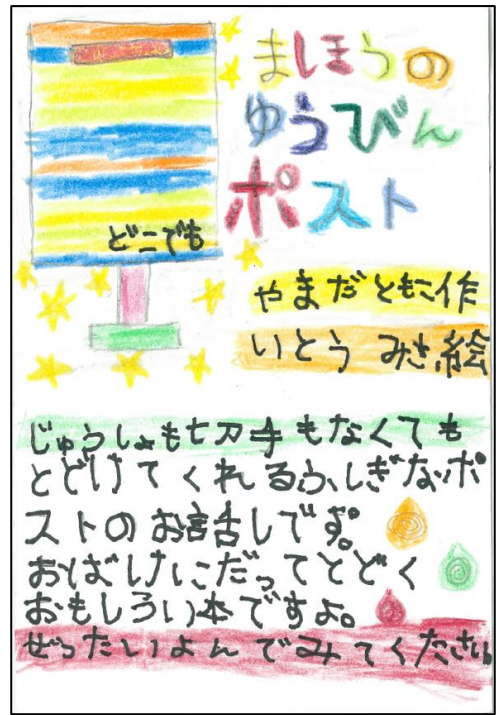 まほうの
ゆうびん
ポスト
どこでも
やまだともこ作
いとう みき絵
じゅうしょも切手もなくても
とどけてくれるふしぎなポ
ストのお話しです。
おばけにだってとどく
おもしろい本ですよ。
ぜったいよんでみてください。